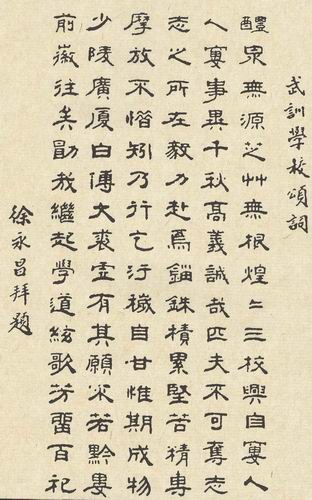 武訓學校頌詞
醴泉無源芝艸無根煌〻三校興自窶人
人窶事異千秋高義誠哉匹夫不可奪志
志之所在毅力赴焉錙銖積累堅苦精專
摩放不惜矧乃行乞汙穢自甘惟期成物
少陵廣廈白傅大裘虛有其願未若黔婁
前徽往矣勖我繼起學道絃歌芳畱百祀
徐永昌拜題